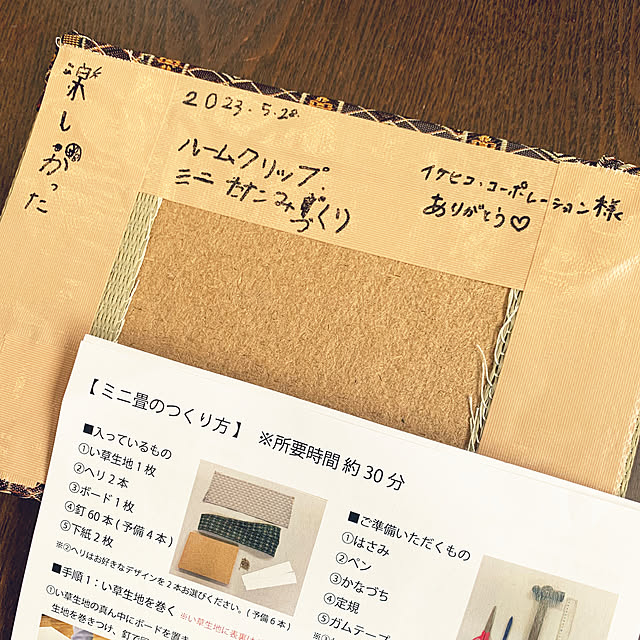 楽しかった
2023.5.28.
ルームクリップ
ミニ たたみ
づくり
イケヒコ・コーポレーション様
ありがとう♡
【ミニ畳のつくり方】 ※所要時間 約30分
■入っているもの
①い草生地1枚
②ヘリ2本
③ボード1枚
④釘60本(予備4本)
⑤下紙2枚
※②ヘリはお好きなデザインを2本お選びください。(予備6本)
■手順1:い草生地を巻く ※い草生地に表裏は
①い草生地の真ん中にボードを置き
生地を巻きつけ、釘で
■ご準備いただくもの
①はさみ
②ペン
③かなづち
④定規
⑤ガムテープ